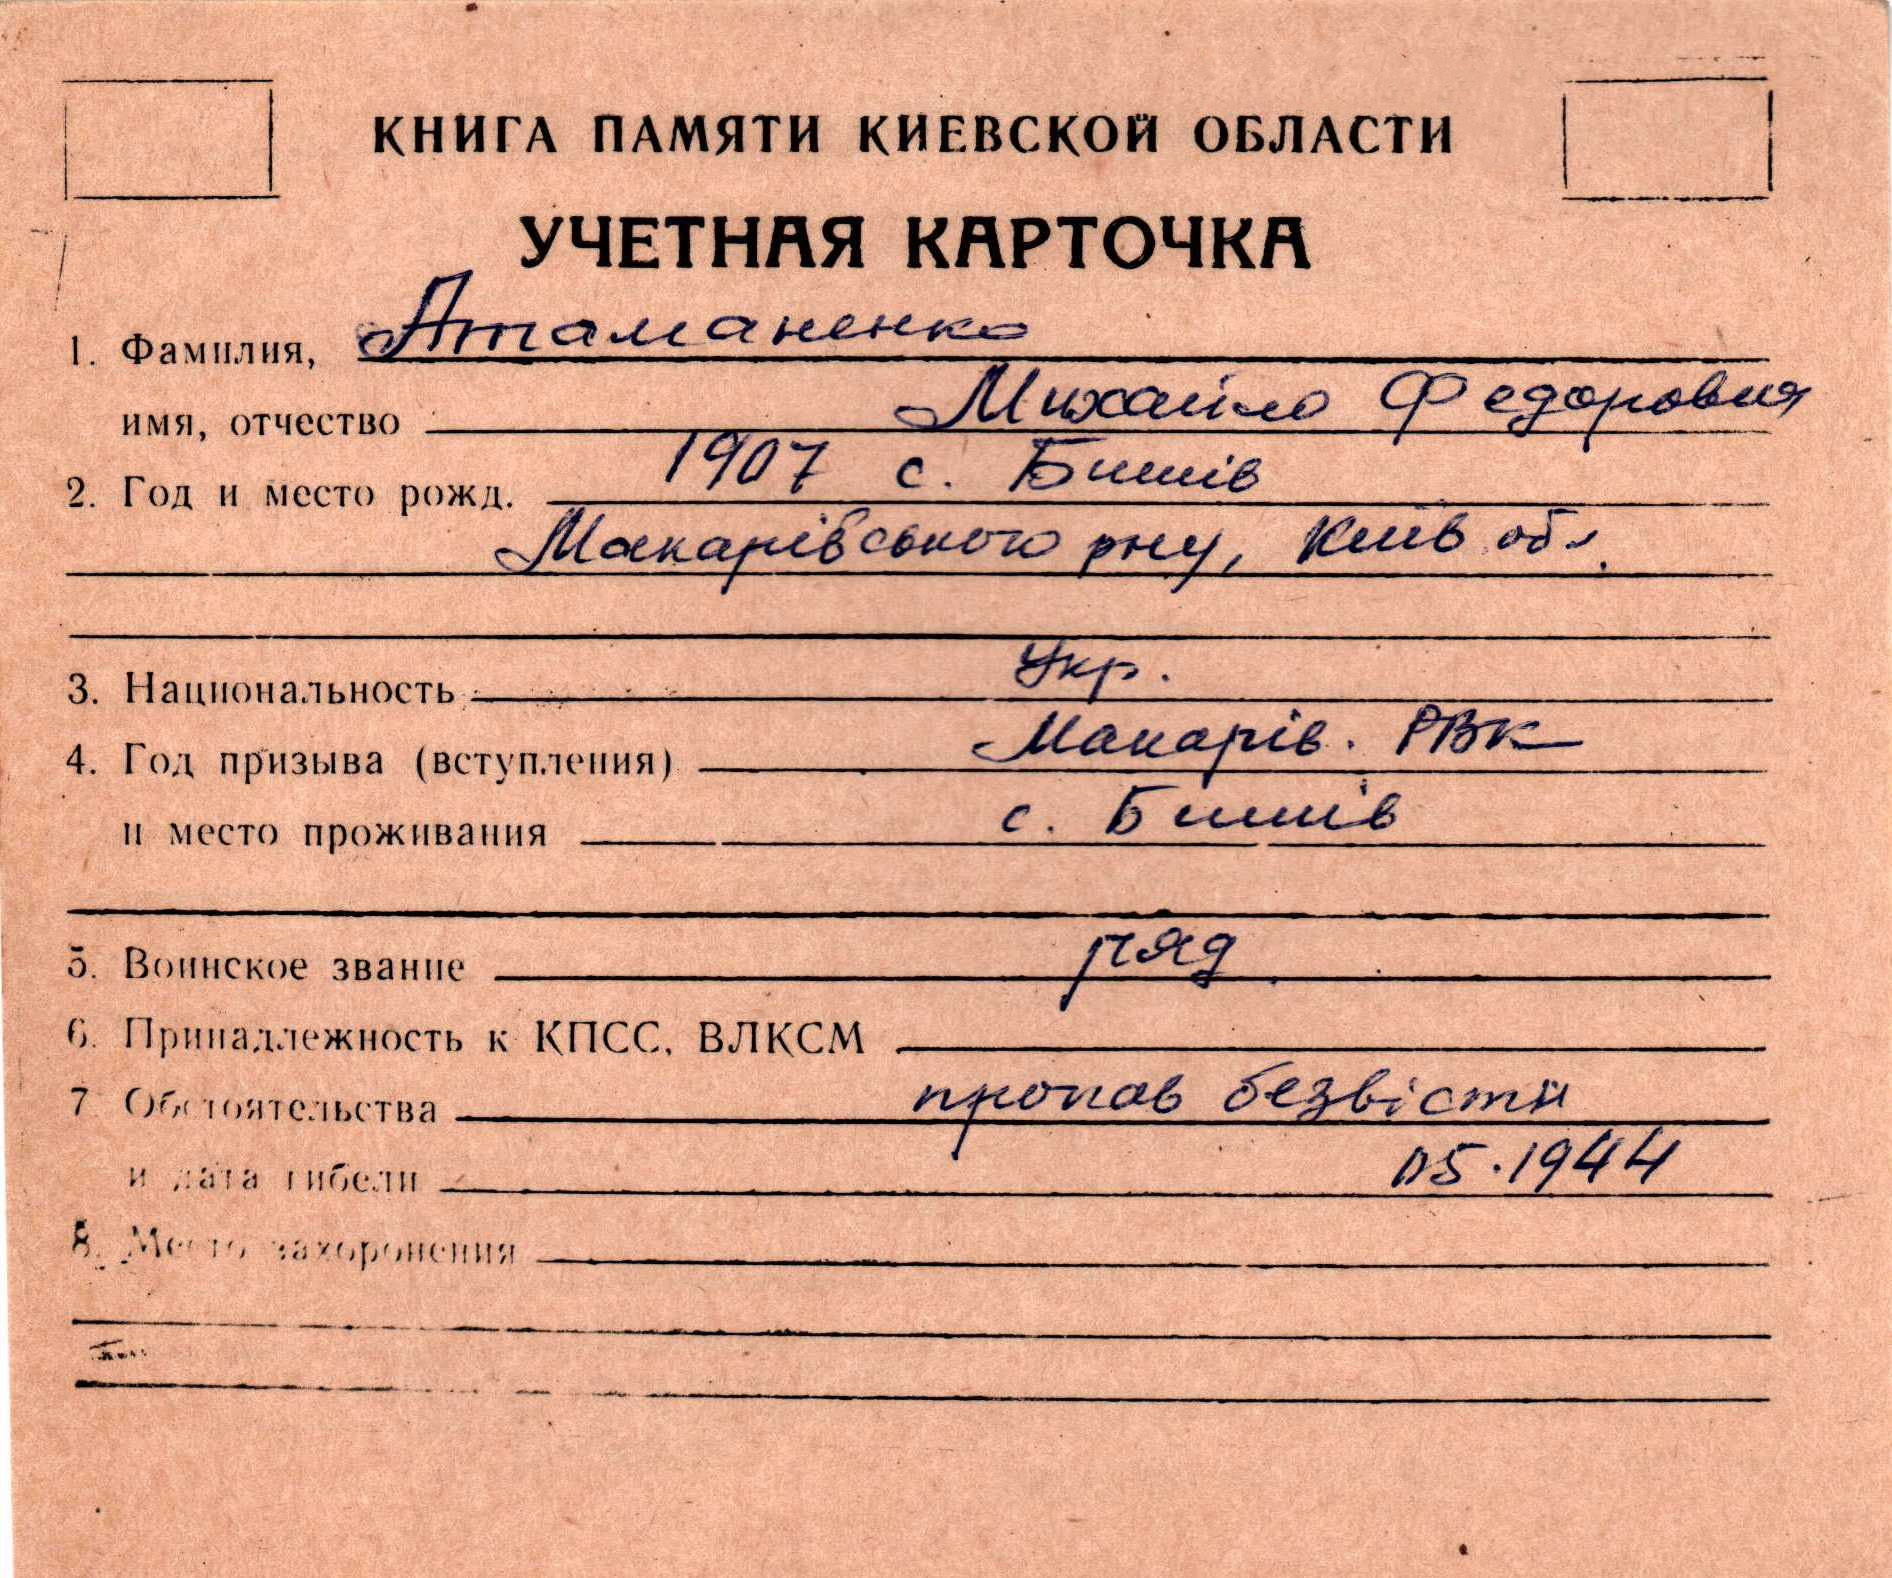 КНИГА ПАМЯТИ КИЕВСКОЙ ОБЛАСТИ
УЧЕТНАЯ КАРТОЧКА
1. Фамилия, Атаманенко
имя, отчество Михайло Федорович
2. Год и место рожд. 1907 с. Бишів
Макарівського рну, Київ обл.
3. Национальность Укр.
4. Год призыва (вступления) Макарів. РВК
и место проживания с. Бишів
5. Воинское звание ряд.
6. Принадлежность к КПСС, ВЛКСМ
7 Обстоятельства пропав безвісти
и дата гибели 05.1944
8. Место захоронения